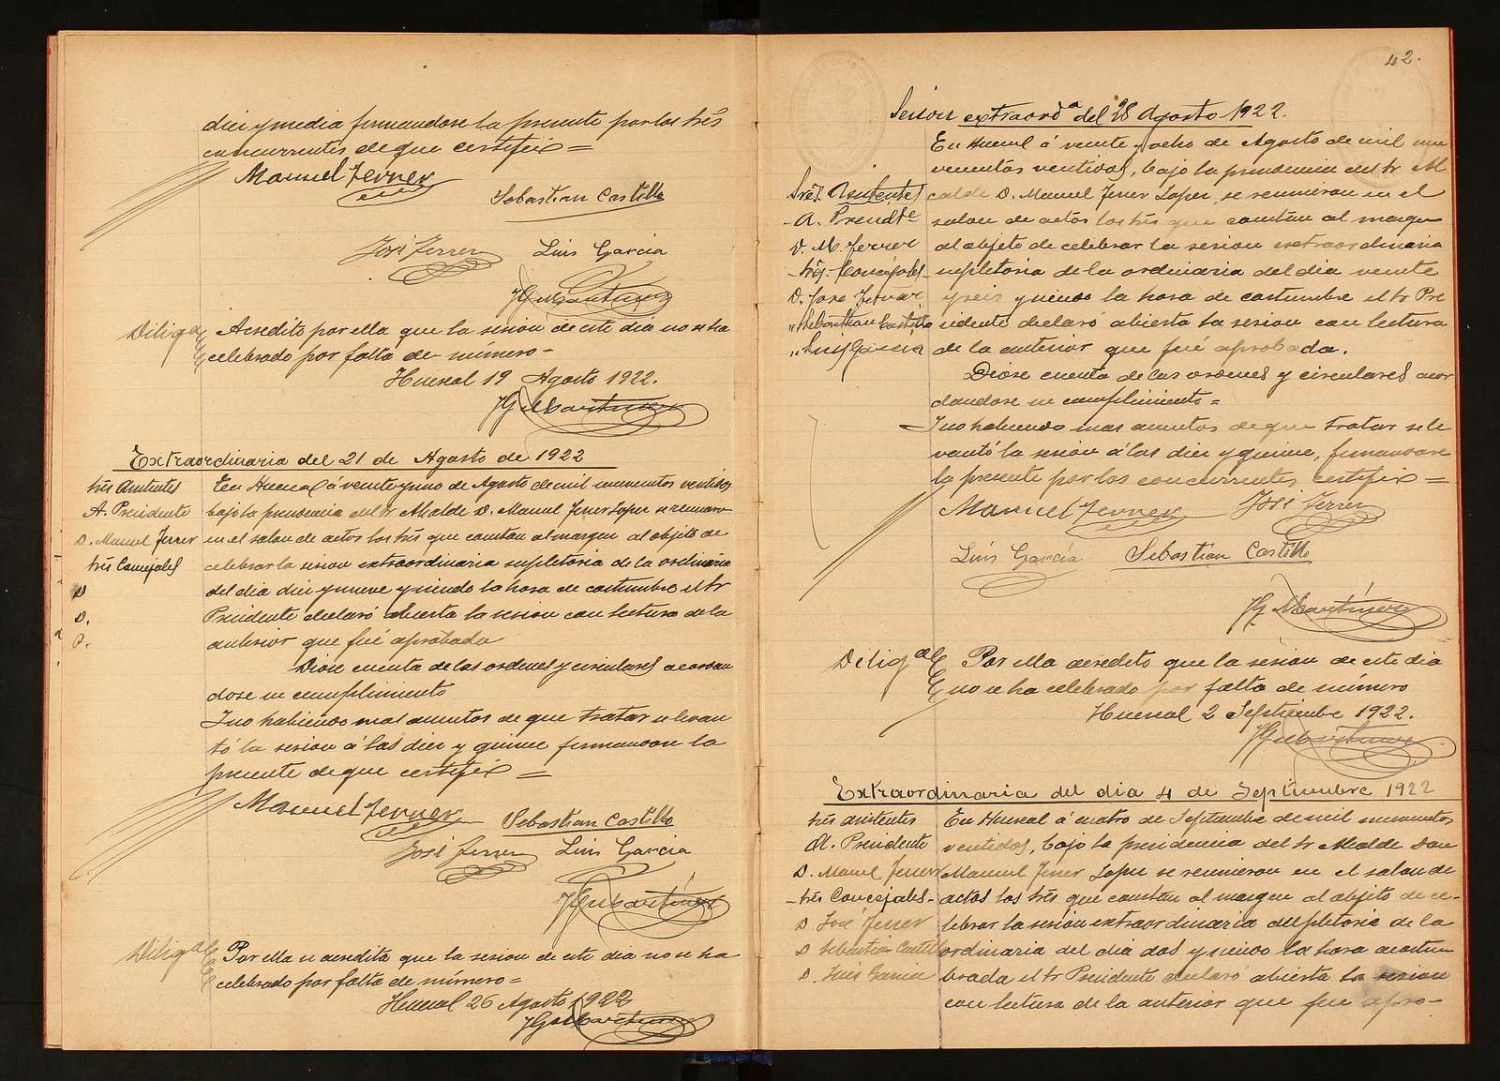 diez y media firmandose la presente por los Srs
concurrentes de que certifico =
Manuel Ferrer
Sebastian Castillo
José Ferrer Luis Garcia
Diliga Acredito por ella que la sesion de este dia no se ha
celebrado por falta de número -
Huesal 19 Agosto 1922.
Extraordinaria del 21 de Agosto de 1922
Srs Asistentes
A. Presidente
D. Manuel Ferrer
Srs Concejales
D
D.
D.
En Huesal á veinte y uno de Agosto de mil novecientos ventidos
bajo la presidencia del Sr Alcalde D. Manuel Ferrer Lopez se reunieron
en el salon de actos los Srs que constan al margen al objeto de
celebrar la sesion extraordinaria supletoria de la ordinaria
del dia diez y nueve y siendo la hora de costumbre el Sr
Presidente declaró abierta la sesion con lectura de la
anterior que fué aprobada
Diose cuenta de las ordenes y circulares acordan
dose su cumplimiento
Y no habiendo mas asuntos de que tratar se levan
tó la sesion á las diez y quince firmandose la
presente de que certifico =
Manuel Ferrer Sebastian Castillo
José Ferrer Luis Garcia
Diliga Por ella se acredita que la sesion de este dia no se ha
celebrado por falta de número =
Huesal 26 Agosto 1922
42.
Sesion extraorda del 28 Agosto 1922.
Sres. Asistentes
A. Presidte
D. M. Ferrer
Srs. Concejales
D. Jose Ferrer
" Sebastian Castillo
" Luis Garcia
En Huesal á veinte y ocho de Agosto de mil nove
cientos ventidos, bajo la presidencia del Sr Al
calde D. Manuel Ferrer Lopez, se reunieron en el
salon de actos los Srs que constan al margen
al objeto de celebrar la sesion extraordinaria
supletoria de la ordinaria del dia veinte
y seis y siendo la hora de costumbre el Sr Pre
sidente declaró abierta la sesion con lectura
de la anterior que fué aprobada.
Diose cuenta de las ordenes y circulares acor
dandose su cumplimiento =
Y no habiendo mas asuntos de que tratar se le
vantó la sesion á las diez y quince, firmandose
la presente por los concurrentes certifico =
Manuel Ferrer José Ferrer
Luis García Sebastian Castillo
Diligª Por ella acredito que la sesion de este dia
no se ha celebrado por falta de número
Huesal 2 Septiembre 1922.
Extraordinaria del dia 4 de Septiembre 1922
Srs Asistentes
A. Presidente
D. Manuel Ferrer
Srs Concejales
D José Ferrer
D Sebastian Castillo
D. Luis Garcia
En Huesal á cuatro de Septiembre de mil novecientos
ventidos, bajo la presidencia del Sr Alcalde Don
Manuel Ferrer Lopez se reunieron en el salon de
actos los Srs que constan al margen al objeto de ce-
lebrar la sesion extraordinaria supletoria de la
ordinaria del dia dos y siendo la hora acostum
brada el Sr Presidente declaró abierta la sesion
con lectura de la anterior que fue apro-